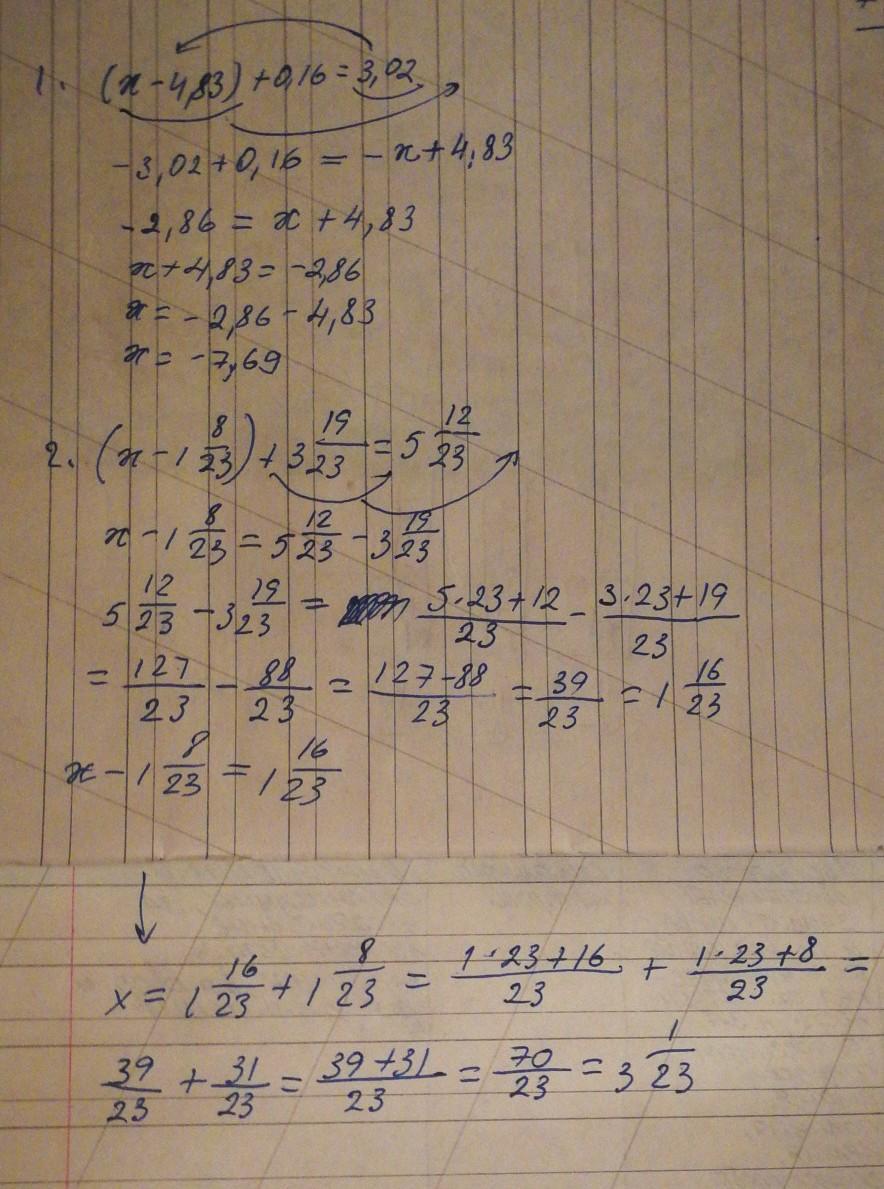 1. (x - 4,83) + 0,16 = 3,02
-3,02 + 0,16 = -x + 4,83
-2,86 = x + 4,83
x + 4,83 = -2,86
x = -2,86 - 4,83
x = -7,69
2. (x - 1 8/23) + 3 19/23 = 5 12/23
x - 1 8/23 = 5 12/23 - 3 19/23
5 12/23 - 3 19/23 = (5·23+12)/23 - (3·23+19)/23
= 127/23 - 88/23 = (127-88)/23 = 39/23 = 1 16/23
x - 1 8/23 = 1 16/23
x = 1 16/23 + 1 8/23 = (1·23+16)/23 + (1·23+8)/23 =
39/23 + 31/23 = (39+31)/23 = 70/23 = 3 1/23